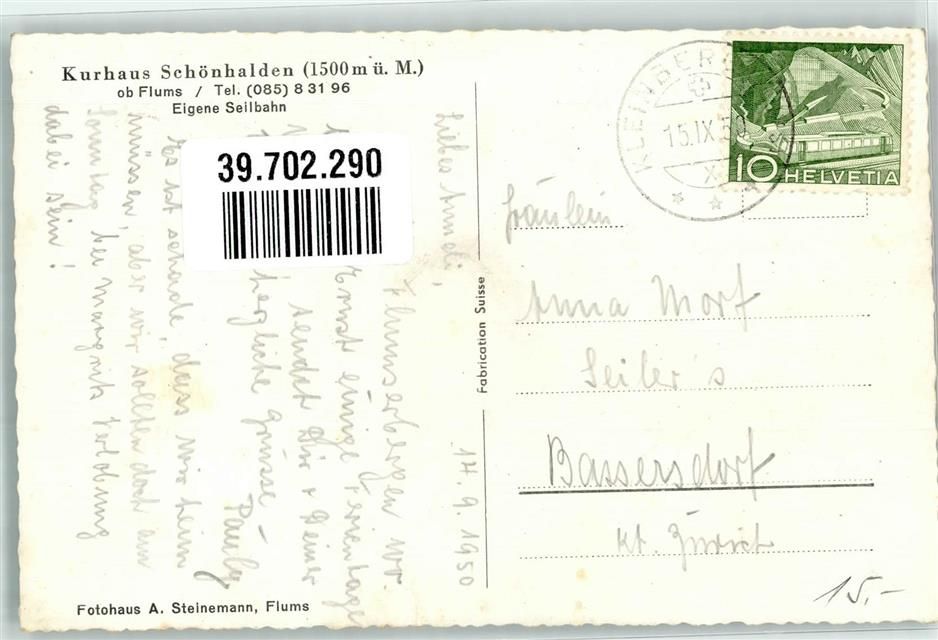 Kurhaus Schönhalden (1500 m ü. M.)
ob Flums / Tel. (085) 8 31 96
Eigene Seilbahn
39.702.290
KLEINBERG
15.IX.50
X
10 HELVETIA
14. 9. 1950
Liebes Anneli,
Flumserbergen
Ernst einige Ferientage
sendet Dir + Deiner
herzliche Grüsse -
Pauly
Es ist schade, dass wir heim
müssen, aber wir sollten doch am
Sonntag bei Margrits Verlobung
dabei sein!
Fabrication Suisse
Fräulein
Anna Morf
Seiler's
Bassersdorf
Kt. Zürich
15.-
Fotohaus A. Steinemann, Flums